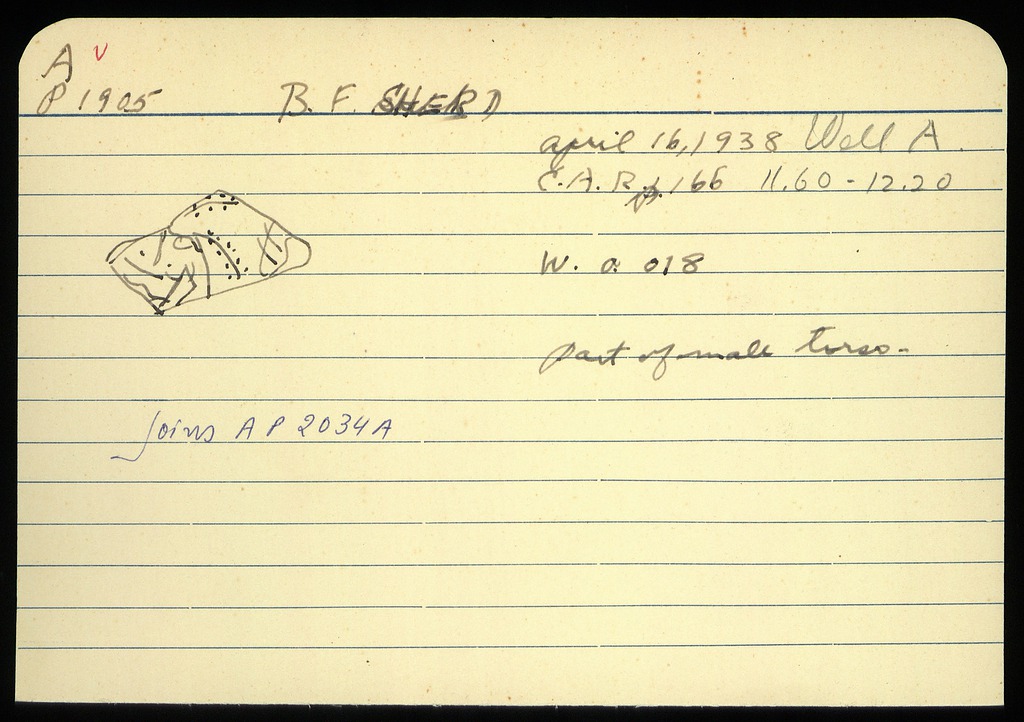 A v
P 1905 B. F. SHERD
april 16, 1938 Well A.
E.A.R. p. 166 11.60 - 12.20
W. 0.018
part of male torso-
Joins A P 2034 A